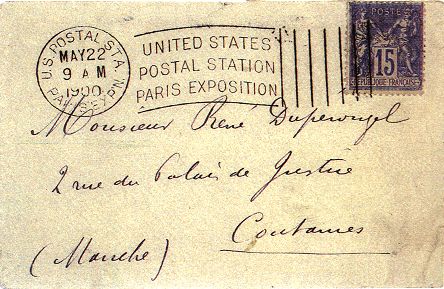 U.S. POSTAL STA.
MAY 22
9 A M
1900
PARIS EXP'N
UNITED STATES
POSTAL STATION
PARIS EXPOSITION
POSTES
15
REPUBLIQUE FRANÇAISE
Monsieur René
2 rue du Palais de Justice
Coutances
(Manche)